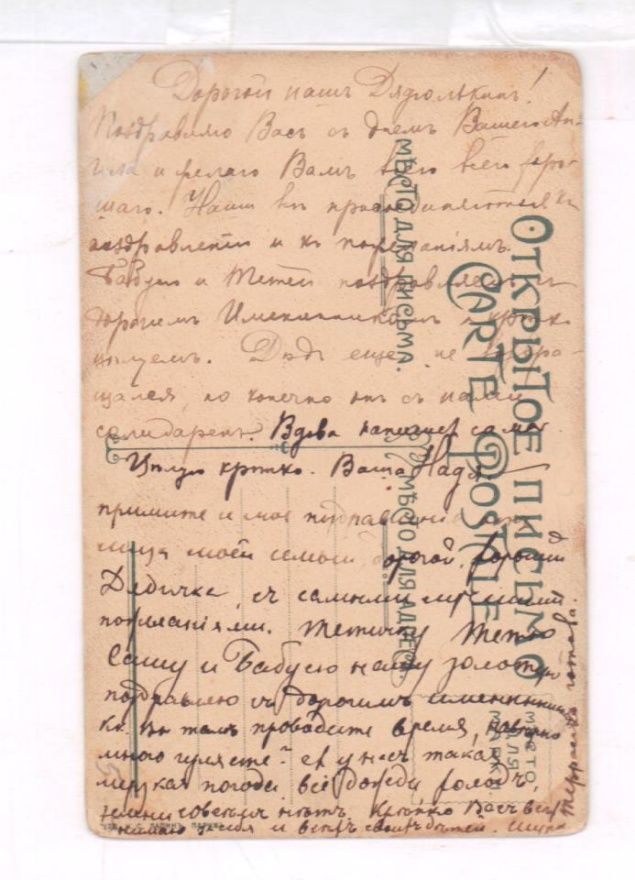 Дорогой нашъ Дядюлькинъ!
Поздравляю Васъ съ днемъ Вашего Ан-
гела и желаю Вамъ всего всего хоро-
шаго. Наши всѣ присоединяются къ
поздравленію и къ пожеланіямъ.
Бабусю и Тетей поздравляемъ съ
дорогимъ Именинникомъ и крѣпко
цѣлуемъ. Дядя еще не возвра-
щался, но конечно онъ съ нами
солидаренъ. Вдова напишетъ сама.
Цѣлую крѣпко. Ваша Надя
примите и мое поздравленіе отъ
лица моей семьи, дорогой, хорошій
Дядичка, съ самыми лучшими
пожеланіями. Тетичку
Сашу и Бабусю нашу золотую
поздравляю съ дорогимъ именинникомъ
какъ вы тамъ проводите время, навѣрно
много гуляете? а у насъ такая
мерзкая погода, всё дожди холодъ
зелени совсѣмъ нѣтъ. Крѣпко Васъ всѣхъ
и всѣхъ своихъ дѣтей.
терраска готова.
ОТКРЫТОЕ ПИСЬМО
CARTE POSTALE
МѢСТО ДЛЯ ПИСЬМА.
МѢСТО ДЛЯ АДРЕСА.
МѢСТО
ДЛЯ
МАРКИ